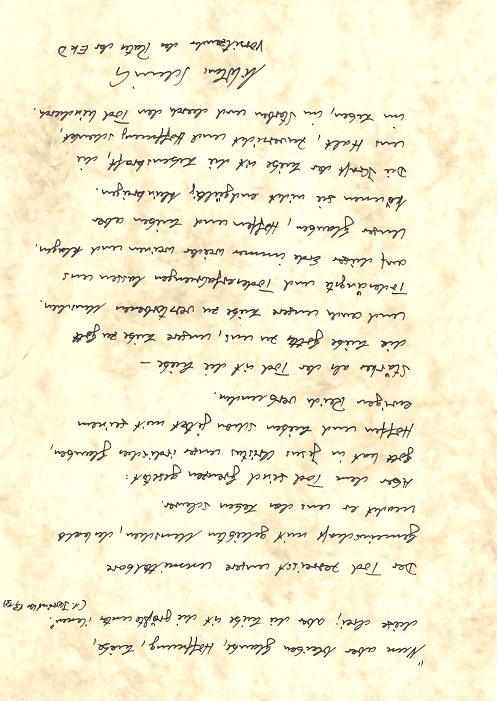 "Nun aber bleiben Glaube, Hoffnung, Liebe,
diese drei; aber die Liebe ist die größte unter ihnen."
(1. Korinther 13,13)
Der Tod zerreisst unsere unmittelbare
Gemeinschaft mit geliebten Menschen, deshalb
macht er uns das Leben schwer.
Aber dem Tod sind Grenzen gesetzt:
Gott hat in Jesus Christus unser irdisches Glauben,
Hoffen und Lieben schon jetzt mit seinem
ewigen Reich verbunden.
Stärker als der Tod ist die Liebe –
die Liebe Gottes zu uns, unsere Liebe zu Gott
und auch unsere Liebe zu verstorbenen Menschen.
Todesängste und Todeserfahrungen lassen uns
auf dieser Erde immer wieder weinen und klagen.
Unser Glauben, Hoffen und Lieben aber
können sie nicht endgültig kleinkriegen.
Die Kraft der Liebe ist die Lebenskraft, die
uns Halt, Zuversicht und Hoffnung schenkt,
im Leben, im Sterben und durch den Tod hindurch.
Vorsitzender des Rates der EKD